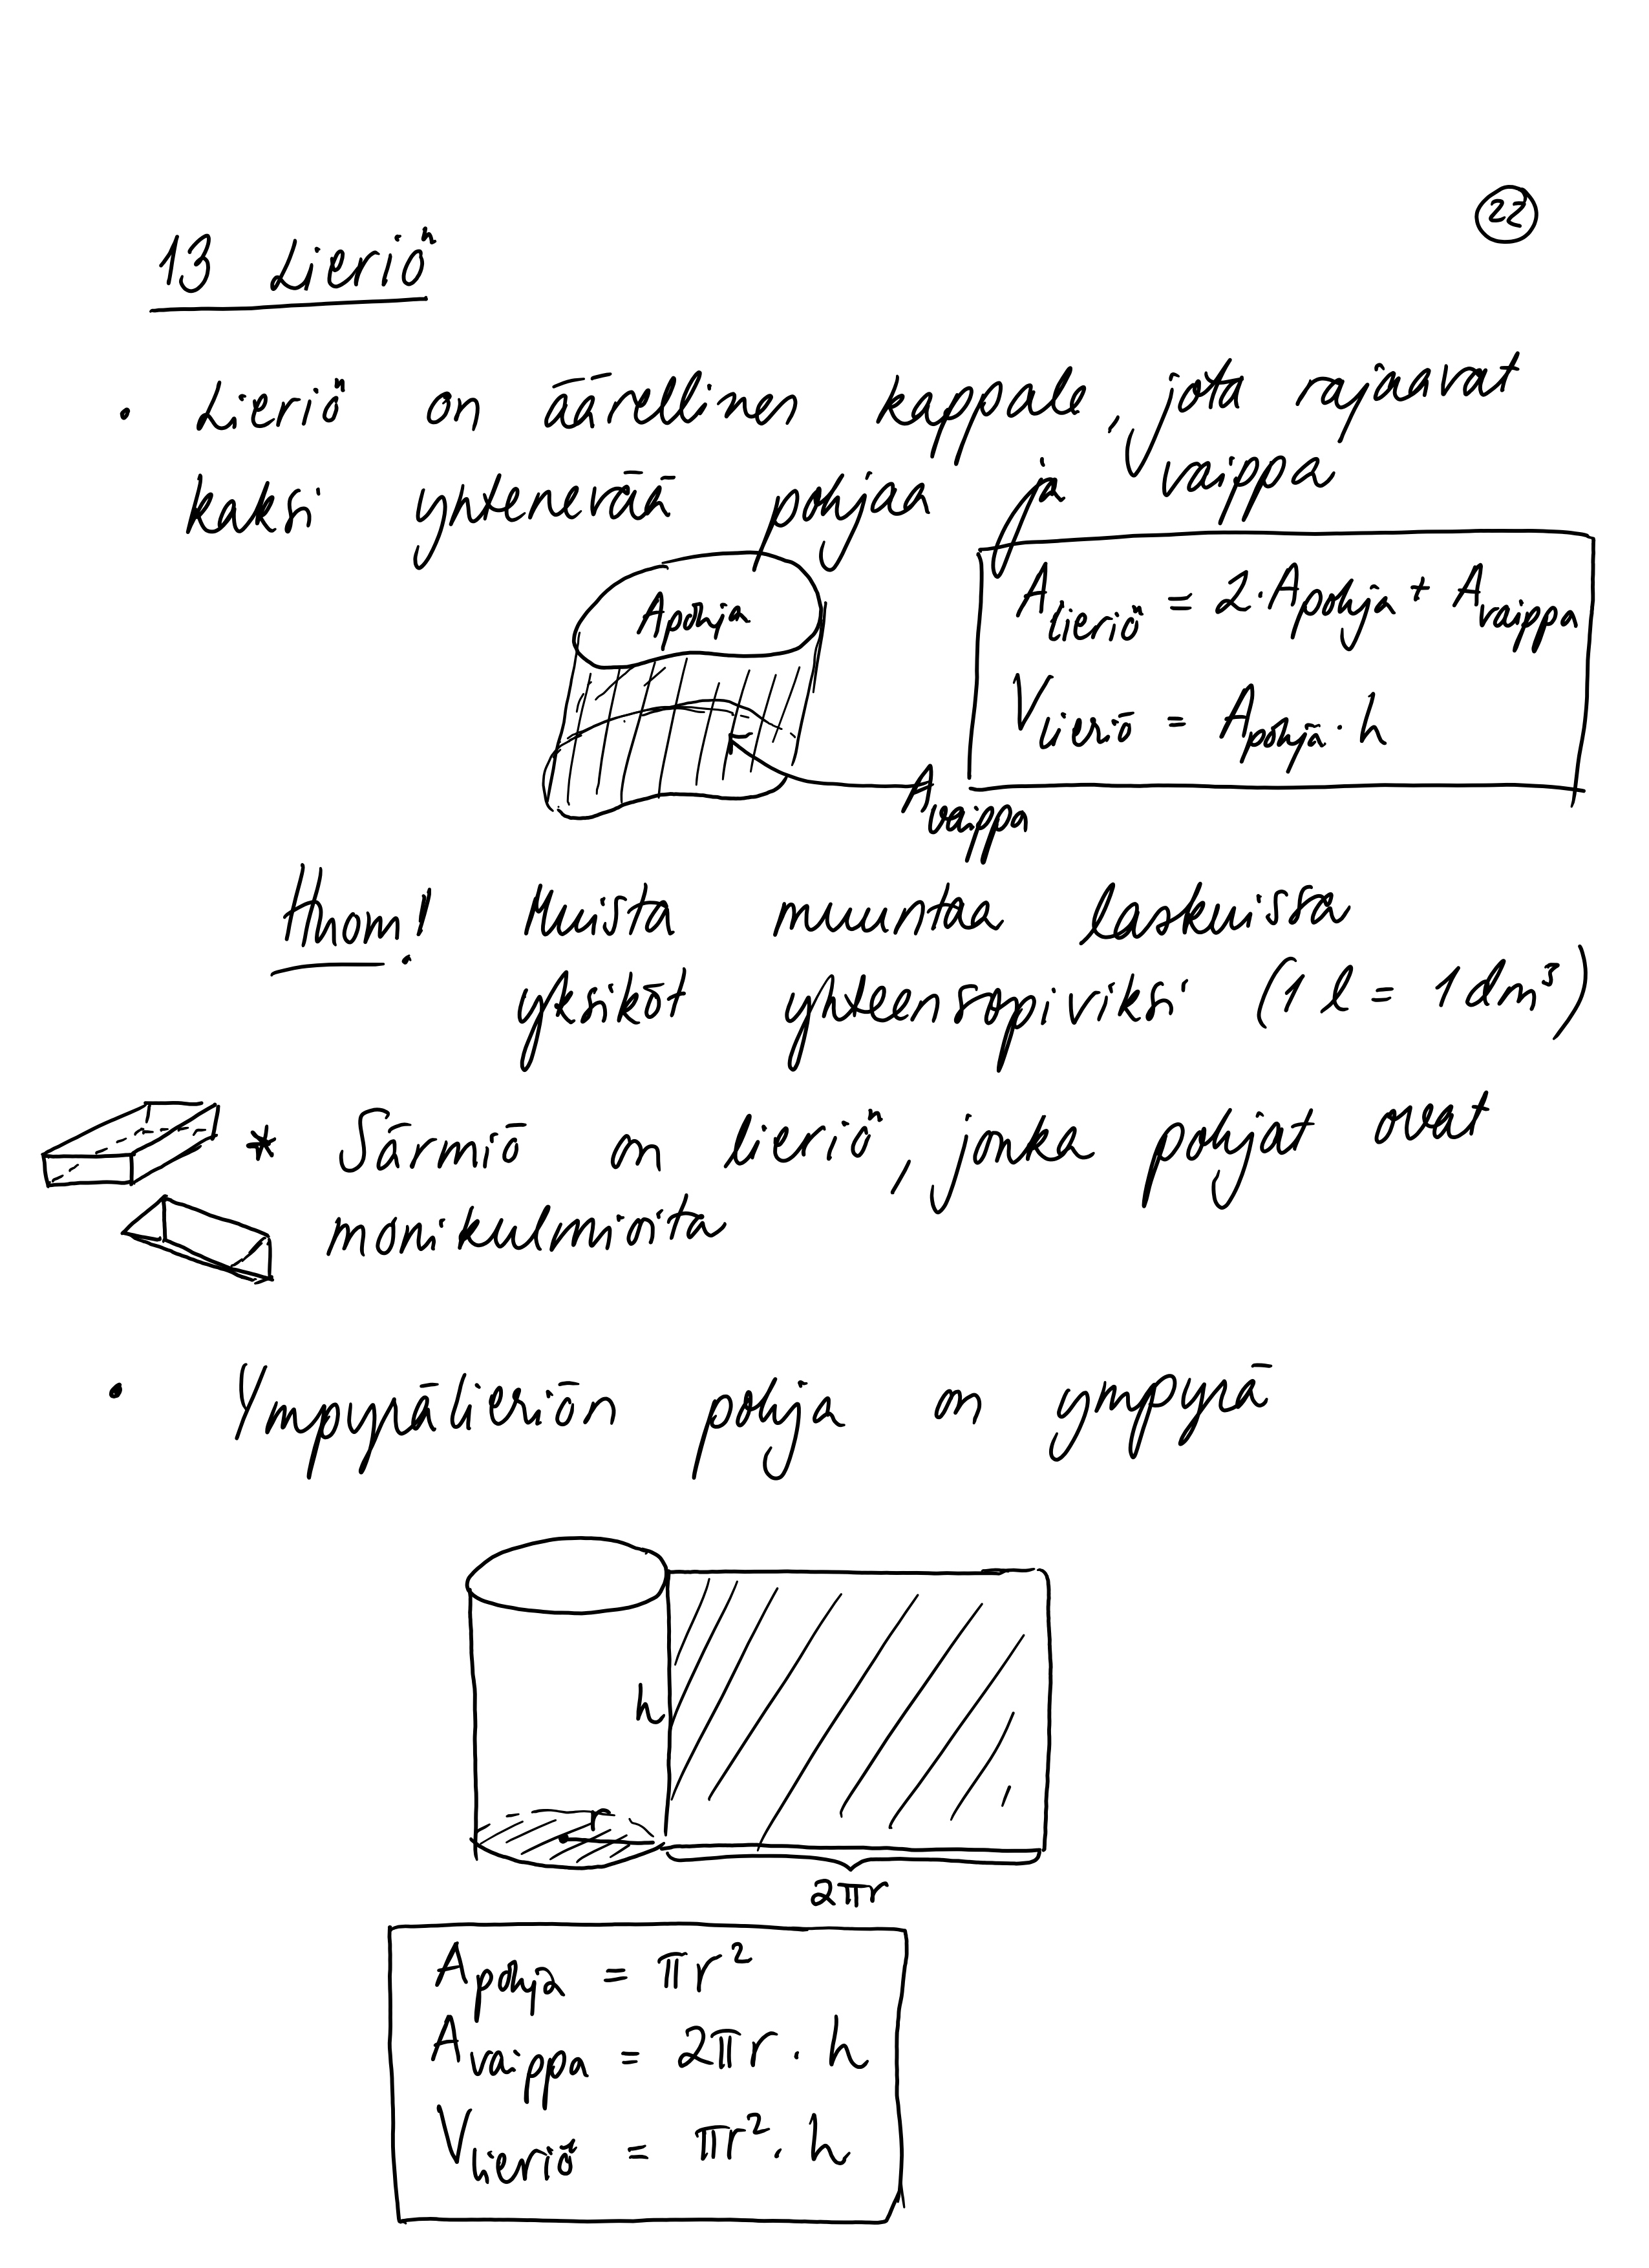 22
13 Lieriö
• Lieriö on äärellinen kappale, jota rajaavat
kaksi yhtenevää pohjaa ja vaippa
A_pohja
A_lieriö = 2·A_pohja + A_vaippa
V_lieriö = A_pohja · h
A_vaippa
Huom! Muista muuntaa laskuissa
yksiköt yhteensopiviksi (1 l = 1 dm³)
* Särmiö on lieriö, jonka pohjat ovat
monikulmioita
• Ympyrälieriön pohja on ympyrä
h
r
2πr
A_pohja = πr²
A_vaippa = 2πr · h
V_lieriö = πr² · h